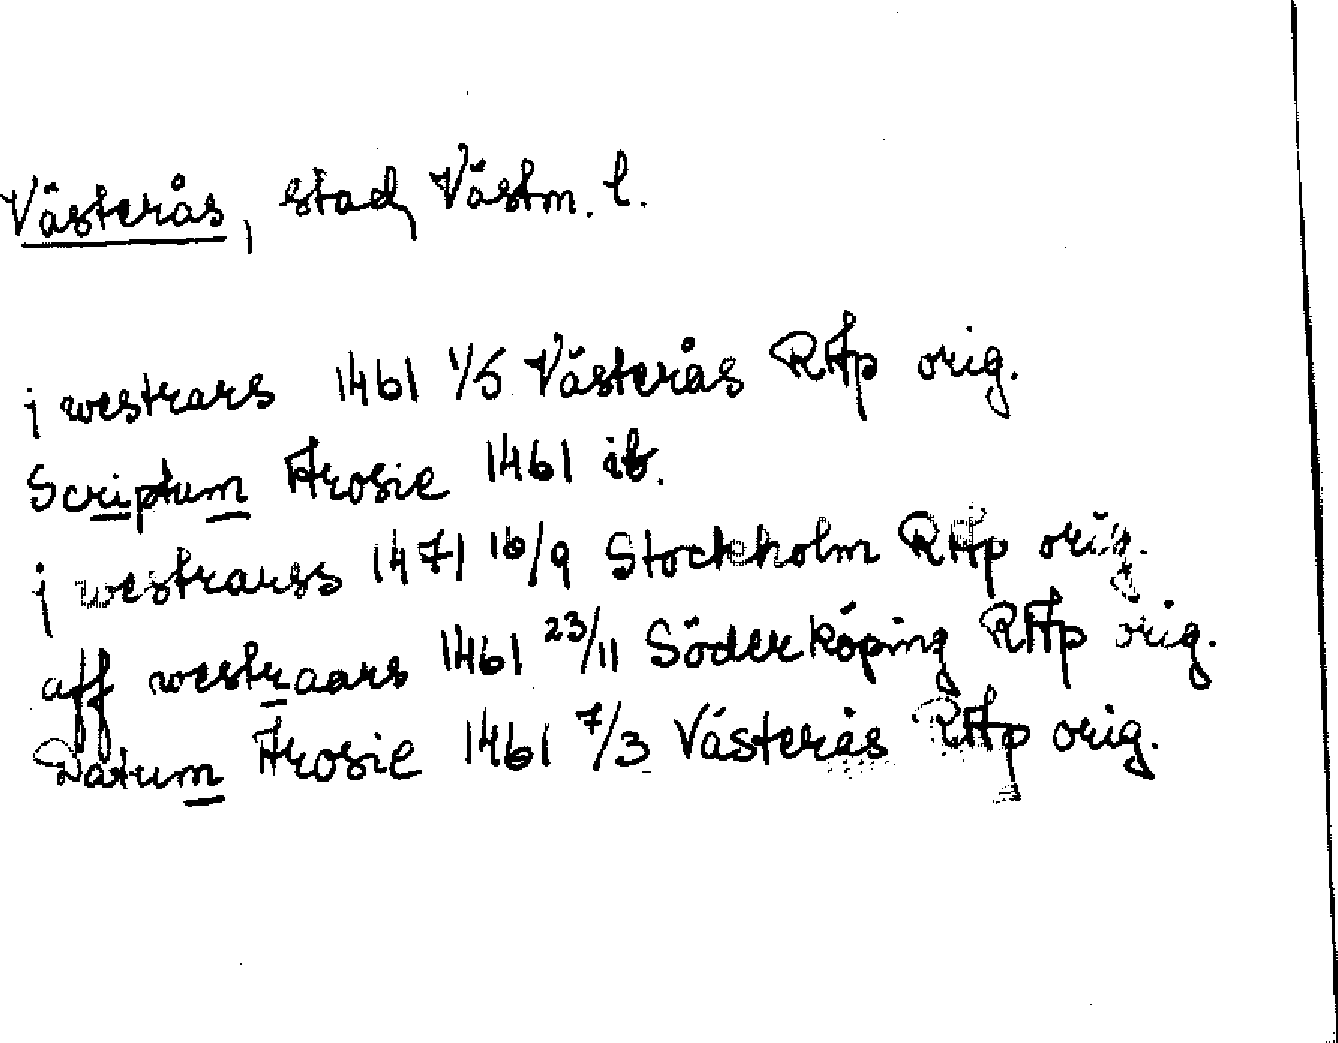 Västerås, stad, Västm. l.
j westrars 1461 1/5 Västerås RAp orig.
Scriptum Arosie 1461 ib.
j westrarss 1471 16/9 Stockholm RAp orig.
aff westraars 1461 23/11 Söderköping RAp orig.
Datum Arosie 1461 7/3 Västerås RAp orig.